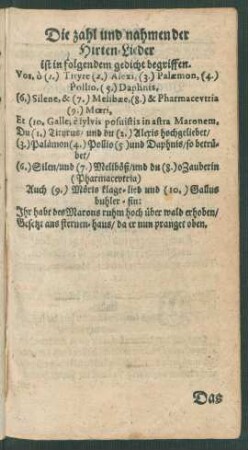 Die zahl und nahmen der
Hirten-Lieder
Ist in folgendem gedicht begriffen.
Vos, ô (1.) Tityre (2.) Alexi, (3.) Palæmon, (4.)
Pollio, (5.) Daphnis,
(6.) Silene, & (7.) Melibæe, (8.) & Pharmacevtria
(9.) Mœri,
Et (10, Galle, è sylvis posuistis in astra Maronem,
Du (1.) Tityrus/ und du (2.) Alexis hochgeliebet/
(3.) Palämon (4.) Pollio (5) und Daphnis/ so betrü-
bet/
(6.) Silen/und (7.) Meliböß/und du (8.) o Zauberin
(Pharmacevtria)
Auch (9.) Möris klage-lied und (10.) Gallus
buhler-sin:
Ihr habt des Marons ruhm hoch über wald erhoben/
Gesetzt ans sternen-haus/ da er nun pranget oben.
Das